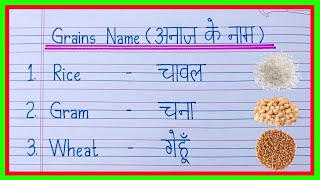 Grains Name (अनाज के नाम)
1. Rice - चावल
2. Gram - चना
3. Wheat - गेहूँ